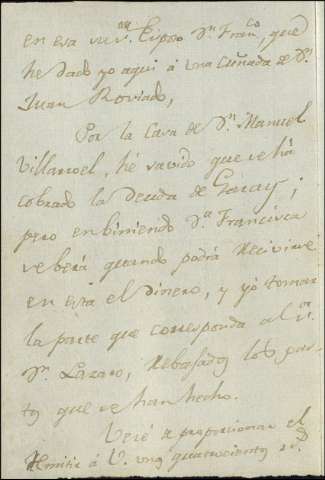 en esa su Sra. Espso Dn. Franco, que
he dado yo aqui á una Cuñada de Dn.
Juan Roviado,
Por la Casa de Dn. Manuel
Villarroel, hé savido que se há
cobrado la Deuda de Garay;
pero en biniendo Da. Francisca
se berá quando podrá Recivirse
en esta el dinero, y yó tomar
la parte que corresponda al Sor.
Dn. Lazaro, Rebajados los gas-
tos que se han hecho.
Veré a proporcionar el
Remitir á V. unos quatrocientos rs.